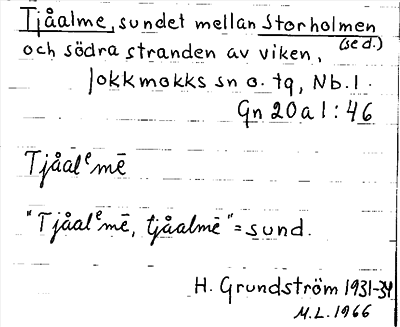 Tjåalme, sundet mellan Storholmen
(se d.)
och södra stranden av viken,
Jokkmokks sn o. tg, Nb. l.
Gn 20a1:46
Tjåalᵉmē
"Tjåalᵉmē, tjåalmē" = sund.
H. Grundström 1931-34
M.L. 1966